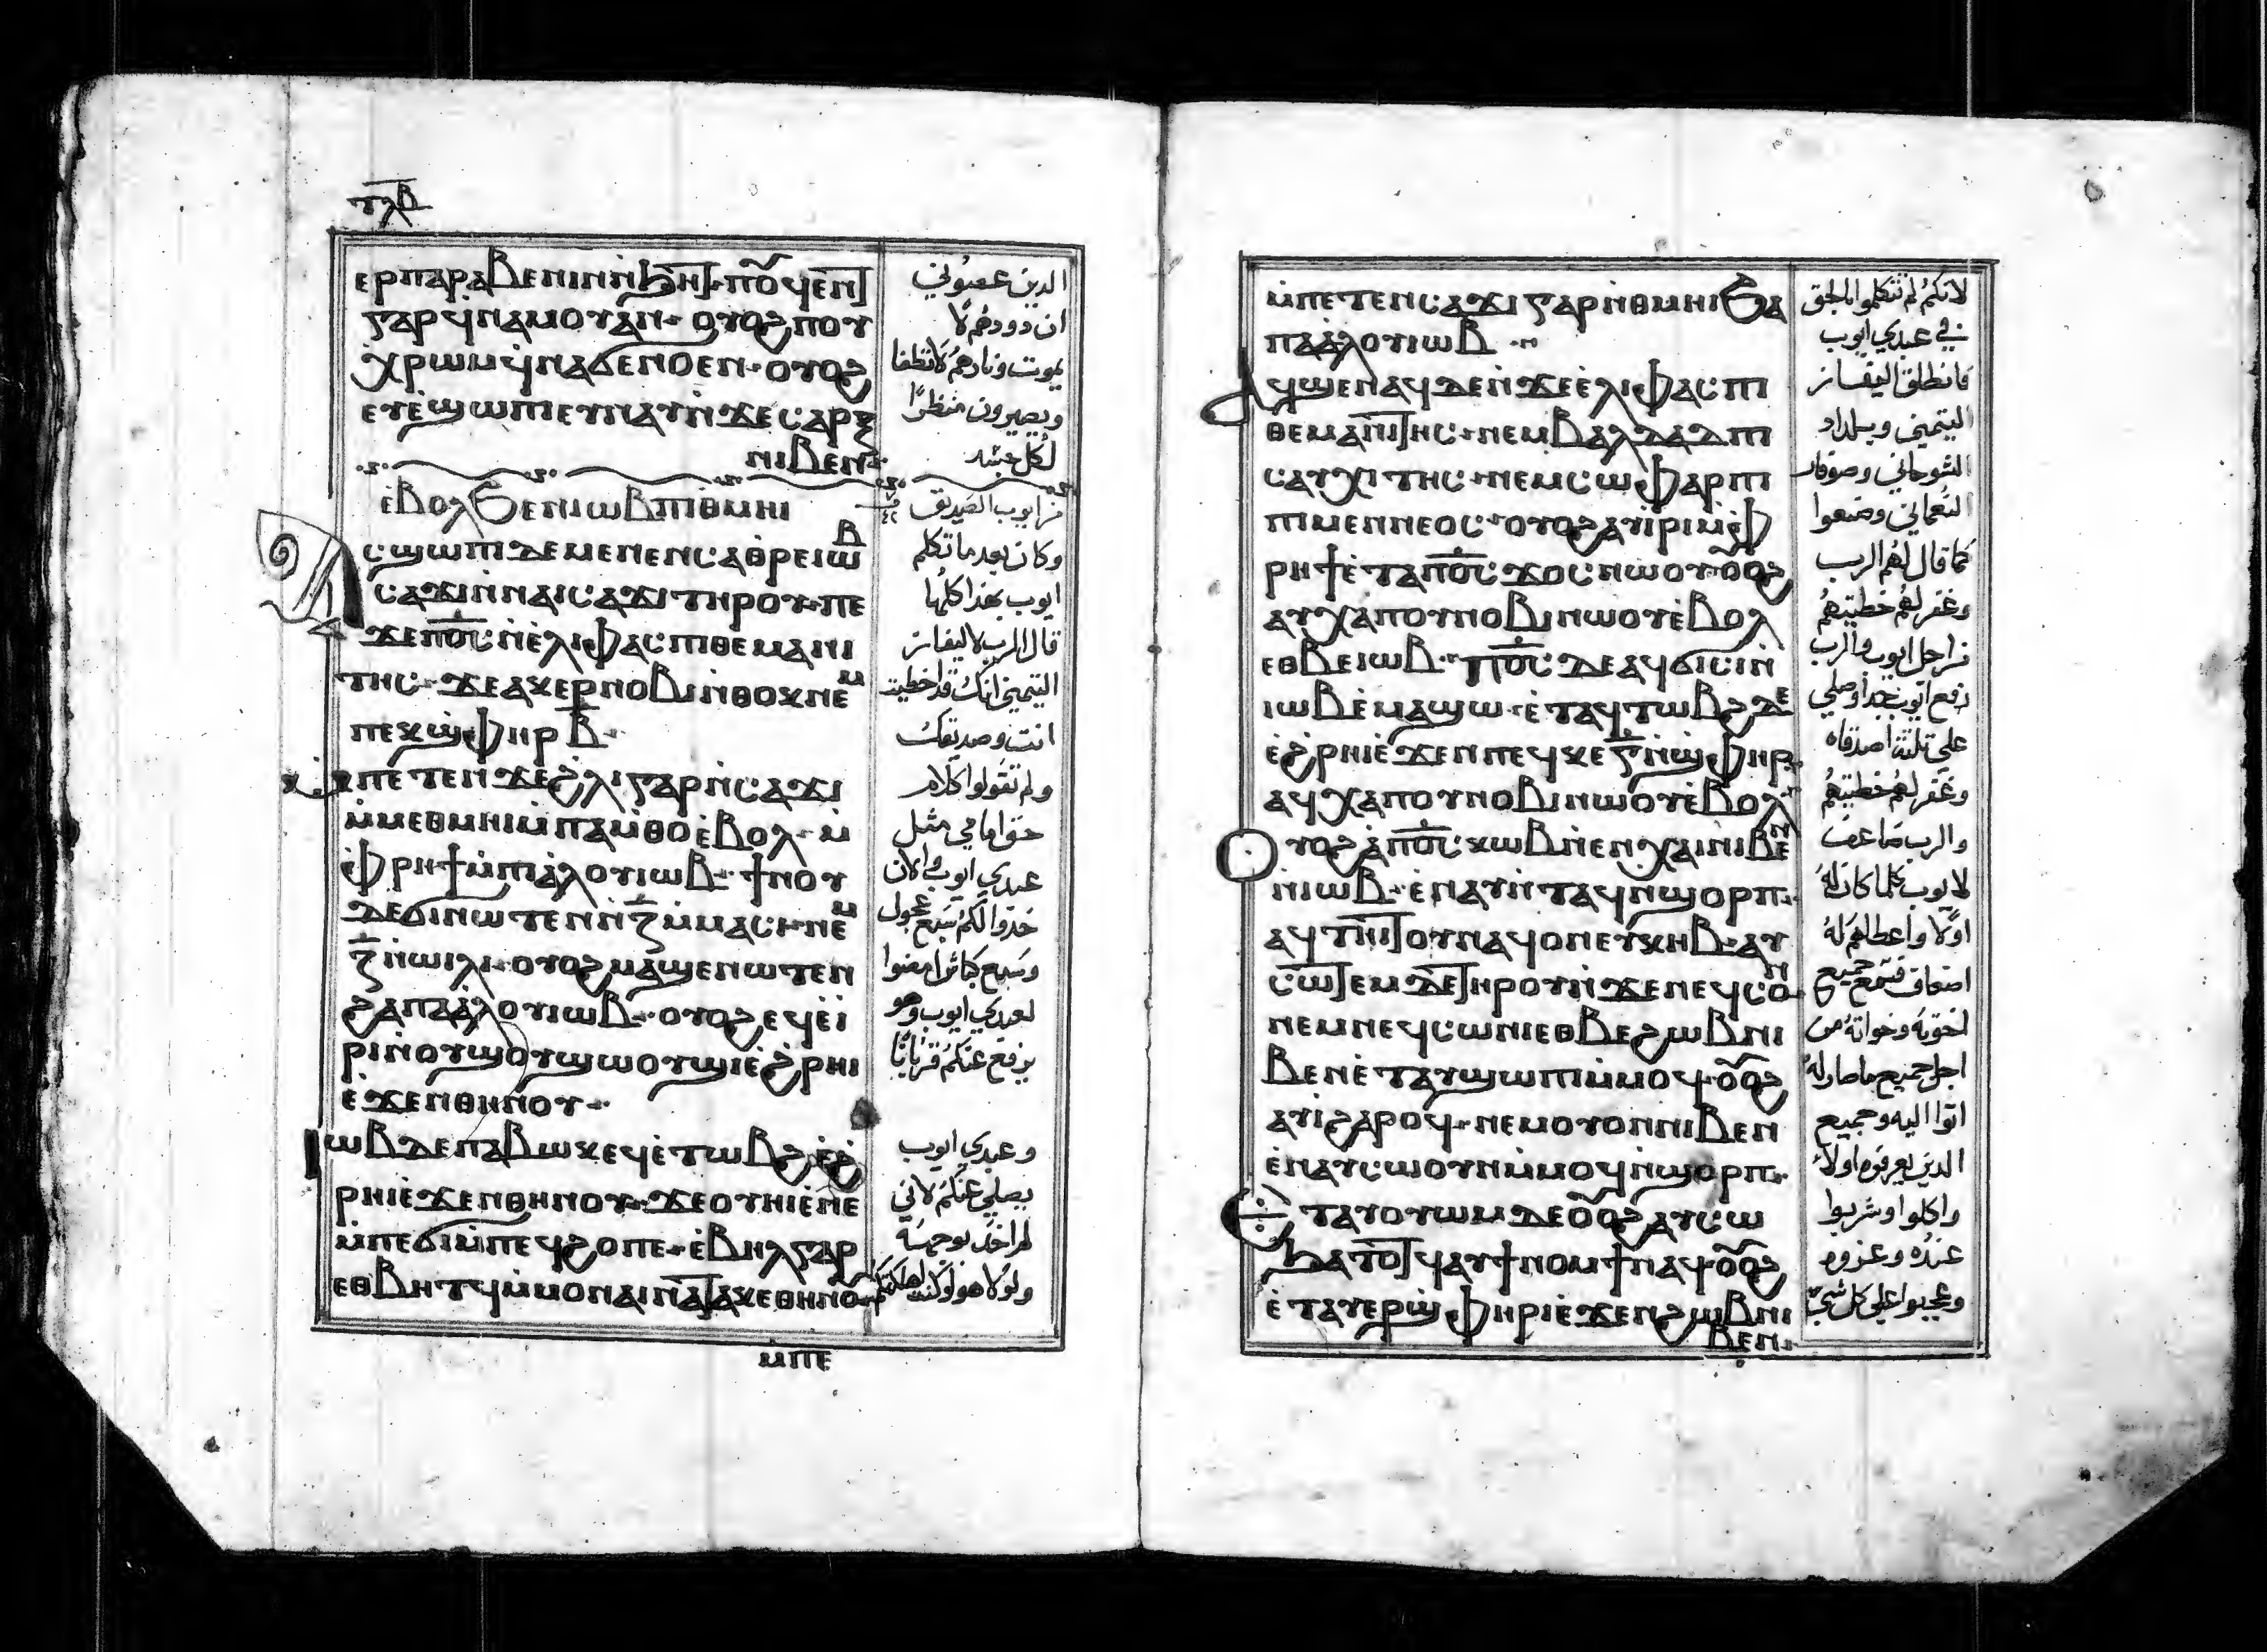 ⲧⲗⲃ
ⲉⲣⲡⲁⲣⲁⲃⲉⲛⲓⲛ ⲛ̀ϧⲏⲧ· ⲡⲟⲩϥⲉⲛⲧ
ⲅⲁⲣ ϥ̀ⲛⲁⲙⲟⲩ ⲁⲛ· ⲟⲩⲟϩ ⲡⲟⲩ
ⲭ̀ⲣⲱⲙ ϥ̀ⲛⲁϭⲉⲛⲟ ⲉⲛ· ⲟⲩⲟϩ
ⲉⲩⲉ̀ϣⲱⲡⲓ ⲉⲩⲛⲁⲩ ⲛ̀ϫⲉ ⲥⲁⲣⲝ
ⲛⲓⲃⲉⲛ·
ⲉ̀ⲃⲟⲗϧⲉⲛ ⲓⲱⲃ ⲡⲓⲑⲙⲏⲓ
ⲁⲥϣⲱⲡⲓ ⲇⲉ ⲙⲉⲛⲉⲛⲥⲁ ⲑ̀ⲣⲉ ⲓⲱⲃ
ⲥⲁϫⲓ ⲛ̀ⲛⲁⲓⲥⲁϫⲓ ⲧⲏⲣⲟⲩ· ⲡⲉ
ϫⲉ ⲡⲟ̅ⲥ̅ ⲛ̀ⲉ̀ⲗⲓⲫⲁⲥ ⲡⲓⲑⲉⲙⲁⲛⲓ
ⲧⲏⲥ· ϫⲉ ⲁⲕⲉⲣⲛⲟⲃⲓ ⲛ̀ⲑⲟⲕ ⲛⲉⲙ
ⲡⲉⲕϣ̀ⲫⲏⲣ ⲃ̅·
ⲙ̀ⲡⲉⲧⲉⲛϫⲉ ϩ̀ⲗⲓ ⲅⲁⲣ ⲛ̀ⲥⲁϫⲓ
ⲙ̀ⲙⲉⲑⲙⲏⲓ ⲙ̀ⲡⲁⲙ̀ⲑⲟ ⲉ̀ⲃⲟⲗ· ⲙ̀
ⲫ̀ⲣⲏϯ ⲙ̀ⲡⲓⲁ̀ⲗⲟⲩ ⲓⲱⲃ· ϯⲛⲟⲩ
ⲇⲉ ϭⲓ ⲛⲱⲧⲉⲛ ⲛ̀ⲍ̅ ⲙ̀ⲙⲁⲥⲓ· ⲛⲉⲙ
ⲍ̅ ⲛ̀ⲱⲓⲗⲓ· ⲟⲩⲟϩ ⲙⲁϣⲉⲛⲱⲧⲉⲛ
ϩⲁ ⲡⲁⲁ̀ⲗⲟⲩ ⲓⲱⲃ· ⲟⲩⲟϩ ⲉϥⲉ̀ⲓ̀
ⲣⲓ ⲛ̀ⲟⲩϣⲟⲩϣⲱⲟⲩϣⲓ ⲉ̀ϩ̀ⲣⲏⲓ
ⲉ̀ϫⲉⲛ ⲑⲏⲛⲟⲩ·
ⲓⲱⲃ ⲇⲉ ⲡⲁⲃⲱⲕ ⲉϥⲉ̀ⲧⲱⲃϩ ⲉ̀ϩ̀
ⲣⲏⲓ ⲉ̀ϫⲉⲛ ⲑⲏⲛⲟⲩ· ϫⲉ ⲟⲩⲏⲓ ⲉ̀ⲛⲉ
ⲙ̀ⲡⲉϭⲓ ⲙ̀ⲡⲉϥϩⲟ ⲡⲉ· ⲉ̀ⲃⲏⲗ ⲅⲁⲣ
ⲉⲑⲃⲏⲧϥ ⲙ̀ⲙⲟⲛ ⲛⲁⲓⲛⲁⲧⲁⲕⲉ ⲑⲏⲛⲟⲩ
ⲙ̀ⲡⲉ
الدين عصوني
ان دودهم لا
يموت ونارهم لا تطفا
ويصيرون منظرًا
لكل جسد
من ايوب الصديق
وكان بعد ما تكلم
ايوب بهذا كلها
قال الرب لاليفاز
التيمني انك قد اخطيت
انت وصديقك
ولم تقولوا كلام
حق امامي مثل
عبدي ايوب والان
خذوا لكم سبع عجول
وسبع كباش وامضوا
لعبدي ايوب وهو
يرفع عنكم قربانًا
وعبدي ايوب
يصلي عنكم لاني
لم اخذ بوجهه
ولولا هو لكنت اهلككم
ⲙ̀ⲡⲉⲧⲉⲛⲥⲁϫⲓ ⲅⲁⲣ ⲛ̀ⲑⲙⲏⲓ ϧⲁ
ⲡⲁⲁ̀ⲗⲟⲩ ⲓⲱⲃ·
ⲁϥϣⲉⲛⲁϥ ⲇⲉ ⲛ̀ϫⲉ ⲉ̀ⲗⲓⲫⲁⲥ ⲡⲓ
ⲑⲉⲙⲁⲛⲓⲧⲏⲥ· ⲛⲉⲙ ⲃⲁⲗⲇⲁⲇ ⲡⲓ
ⲥⲁⲩⲭⲓⲧⲏⲥ· ⲛⲉⲙ ⲥⲱⲫⲁⲣ ⲡⲓ
ⲙⲓⲛⲉⲛⲛⲉⲟⲥ· ⲟⲩⲟϩ ⲁⲩⲓ̀ⲣⲓ ⲙ̀ⲫ̀
ⲣⲏϯ ⲉ̀ⲧⲁ ⲡⲟ̅ⲥ̅ ϫⲟⲥ ⲛⲱⲟⲩ· ⲟⲟϩ
ⲁⲩⲭⲁ ⲡⲟⲩⲛⲟⲃⲓ ⲛⲱⲟⲩ ⲉ̀ⲃⲟⲗ
ⲉⲑⲃⲉ ⲓⲱⲃ· ⲡⲟ̅ⲥ̅ ⲇⲉ ⲁϥϭⲓⲥⲓ ⲛ̀
ⲓⲱⲃ ⲉ̀ⲙⲁϣⲱ· ⲉ̀ⲧⲁϥⲧⲱⲃϩ ⲇⲉ
ⲉ̀ϩ̀ⲣⲏⲓ ⲉ̀ϫⲉⲛ ⲡⲉϥⲕⲉ ⲅ̅ ⲛ̀ϣ̀ⲫⲏⲣ·
ⲁϥⲭⲁ ⲡⲟⲩⲛⲟⲃⲓ ⲛⲱⲟⲩ ⲉ̀ⲃⲟⲗ
ⲟⲩⲟϩ ⲁ̀ ⲡⲟ̅ⲥ̅ ⲕⲱⲃ ⲛ̀ⲉⲛⲭⲁⲓ ⲛⲓⲃⲉⲛ
ⲛ̀ⲓⲱⲃ· ⲉ̀ⲛⲁⲩ ⲛ̀ⲧⲁϥ ⲛ̀ϣⲟⲣⲡ·
ⲁϥⲧⲏⲓⲧⲟⲩ ⲛⲁϥ ⲟⲛ ⲉⲩⲕⲏⲃ· ⲁⲩ
ⲥⲱⲧⲉⲙ ⲇⲉ ⲧⲏⲣⲟⲩ ⲛ̀ϫⲉ ⲛⲉϥⲥⲟⲛ
ⲛⲉⲙ ⲛⲉϥⲥⲱⲛⲓ ⲉⲑⲃⲉ ϩⲱⲃ ⲛⲓ
ⲃⲉⲛ ⲉ̀ⲧⲁⲩϣⲱⲡⲓ ⲙ̀ⲙⲟϥ· ⲟⲟϩ
ⲁⲩⲓ̀ ϩⲁⲣⲟϥ· ⲛⲉⲙ ⲟⲩⲟⲛ ⲛⲓⲃⲉⲛ
ⲉ̀ⲛⲁⲩⲥⲱⲟⲩⲛ ⲙ̀ⲙⲟϥ ⲛ̀ϣⲟⲣⲡ·
ⲉ̀ⲧⲁⲩⲟⲩⲱⲙ ⲇⲉ ⲟⲟϩ ⲁⲩⲥⲱ
ϧⲁⲧⲟⲧϥ ⲁⲩϯⲛⲟⲙϯ ⲛⲁϥ· ⲟⲟϩ
ⲉ̀ⲧⲁⲩⲉⲣϣ̀ⲫⲏⲣⲓ ⲉ̀ϫⲉⲛ ϩⲱⲃ ⲛⲓ
ⲃⲉⲛ·
لانكم لم تتكلموا بالحق
في عبدي ايوب
فانطلق اليفاز
التيمني وبلداد
الشوحاني وصوفار
النعماني وصنعوا
كما قال لهم الرب
وغفر لهم خطيتهم
من اجل ايوب والرب
رفع ايوب جدا وصلي
علي ثلثة اصدقاه
وغفر لهم خطيتهم
والرب ضاعف
لايوب كلما كان له
اولا واعطاهم له
اضعاف فسمع جميع
اخوته وخواته من
اجل جميع ما صار له
اتوا اليه وجميع
الدين يعرفوه اولا
واكلوا وشربوا
عنده وعزوه
وعجبوا علي كل شي